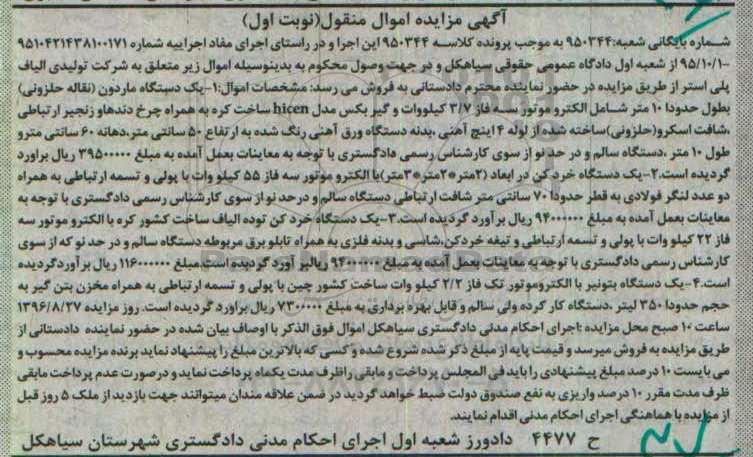 آگهی مزایده اموال منقول(نوبت اول)
شماره بایگانی شعبه:۹۵۰۳۴۴ به موجب پرونده کلاسه ۹۵۰۳۴۴ این اجرا و در راستای اجرای مفاد اجراییه شماره ۹۵۱۰۴۲۱۴۳۸۱۰۰۱۷۱
-۹۵/۱۰/۱ از شعبه اول دادگاه عمومی حقوقی سیاهکل و در جهت وصول محکوم به بدینوسیله اموال زیر متعلق به شرکت تولیدی الیاف
پلی استر از طریق مزایده در حضور نماینده محترم دادستانی به فروش می رسد: مشخصات اموال:۱-یک دستگاه ماردون (نقاله حلزونی)
بطول حدودا ۱۰ متر شامل الکترو موتور سه فاز ۳/۷ کیلووات و گیر بکس مدل hicen ساخت کره به همراه چرخ دندهاو زنجیر ارتباطی
،شافت اسکرو(حلزونی)ساخته شده از لوله ۴ اینچ آهنی ،بدنه دستگاه ورق آهنی رنگ شده به ارتفاع ۵۰ سانتی متر،دهانه ۶۰ سانتی مترو
طول ۱۰ متر ،دستگاه سالم و در حد نو از سوی کارشناس رسمی دادگستری با توجه به معاینات بعمل آمده به مبلغ ۳۹۵۰۰۰۰۰ ریال براورد
گردیده است.۲-یک دستگاه خرد کن در ابعاد (۲متر*۲متر*۳متر)با الکترو موتور سه فاز ۵۵ کیلو وات با پولی و تسمه ارتباطی به همراه
دو عدد لنگر فولادی به قطر حدودا ۷۰ سانتی متر شافت ارتباطی دستگاه سالم و درحد نو از سوی کارشناس رسمی دادگستری با توجه به
معاینات بعمل آمده به مبلغ ۹۴۰۰۰۰۰۰ ریال بر آورد گردیده است.۳-یک دستگاه خرد کن توده الیاف ساخت کشور کره با الکترو موتور سه
فاز ۲۲ کیلو وات با پولی و تسمه ارتباطی و تیغه خردکن،شاسی و بدنه فلزی به همراه تابلو برق مربوطه دستگاه سالم و در حد نو که از سوی
کارشناس رسمی دادگستری با توجه به معاینات بعمل آمده به مبلغ ۹۴۰۰۰۰۰۰ ریالبر آورد گردیده است.مبلغ ۱۱۶۰۰۰۰۰۰ ریال بر آوردگردیده
است.۴-یک دستگاه بتونیر با الکتروموتور تک فاز ۲/۲ کیلو وات ساخت کشور چین با پولی و تسمه ارتباطی به همراه مخزن بتن گیر به
حجم حدودا ۳۵۰ لیتر ،دستگاه کار کرده ولی سالم و قابل بهره برداری به مبلغ ۷۳۰۰۰۰۰ ریال براورد گردیده است. روز مزایده ۱۳۹۶/۸/۲۷
ساعت ۱۰ صبح محل مزایده :اجرای احکام مدنی دادگستری سیاهکل اموال فوق الذکر با اوصاف بیان شده در حضور نماینده دادستانی از
طریق مزایده به فروش میرسد و قیمت پایه از مبلغ ذکر شده شروع شده و کسی که بالاترین مبلغ را پیشنهاد نماید برنده مزایده محسوب و
می بایست ۱۰ درصد مبلغ پیشنهادی را باید فی المجلس پرداخت و مابقی را ظرف مدت یکماه پرداخت نماید و درصورت عدم پرداخت مابقی
ظرف مدت مقرر ۱۰ درصد واریزی به نفع صندوق دولت ضبط خواهد گردید در ضمن علاقه مندان میتوانند جهت بازدید از ملک ۵ روز قبل
از مزایده با هماهنگی اجرای احکام مدنی اقدام نمایند.
ح ۴۴۷۷ دادورز شعبه اول اجرای احکام مدنی دادگستری شهرستان سیاهکل